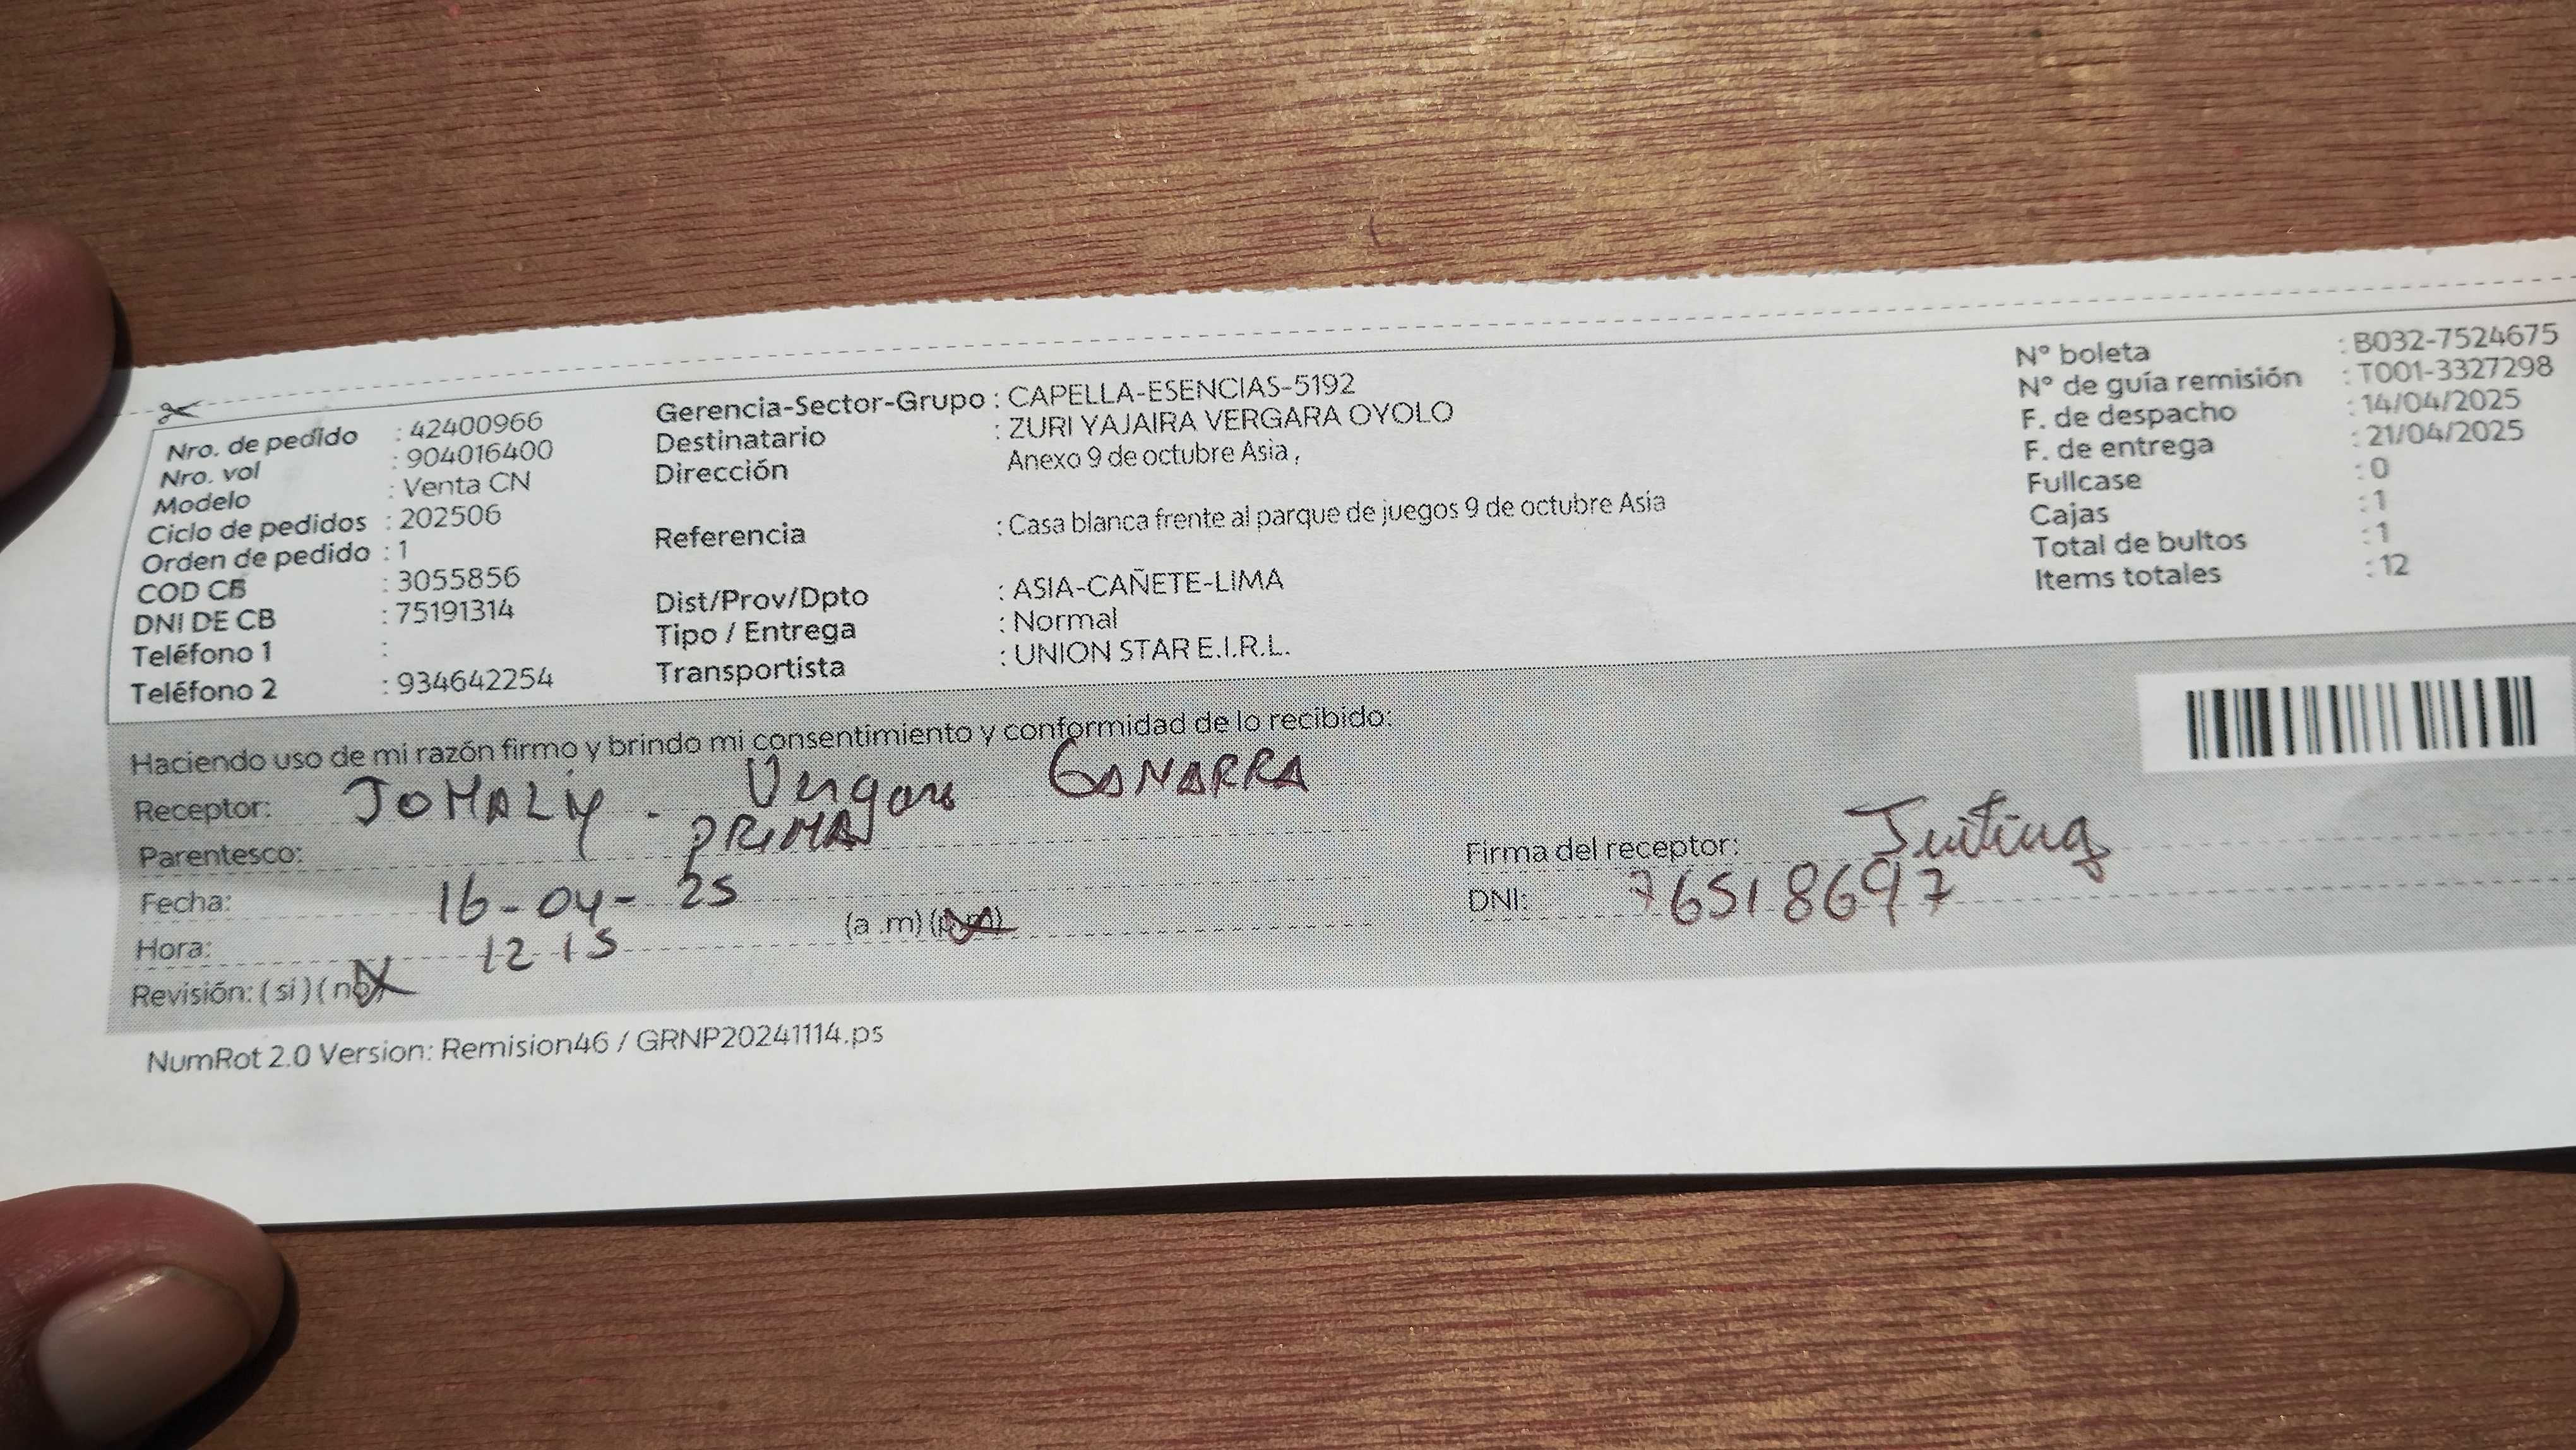 Nro. de pedido : 42400966
Nro. vol : 904016400
Modelo : Venta CN
Ciclo de pedidos : 202506
Orden de pedido : 1
COD CB : 3055856
DNI DE CB : 75191314
Teléfono 1 :
Teléfono 2 : 934642254
Gerencia-Sector-Grupo : CAPELLA-ESENCIAS-5192
Destinatario : ZURI YAJAIRA VERGARA OYOLO
Dirección Anexo 9 de octubre Asia ,
Referencia : Casa blanca frente al parque de juegos 9 de octubre Asia
Dist/Prov/Dpto : ASIA-CAÑETE-LIMA
Tipo / Entrega : Normal
Transportista : UNION STAR E.I.R.L.
N° boleta : B032-7524675
N° de guía remisión : T001-3327298
F. de despacho : 14/04/2025
F. de entrega : 21/04/2025
Fullcase : 0
Cajas : 1
Total de bultos : 1
Items totales : 12
Haciendo uso de mi razón firmo y brindo mi consentimiento y conformidad de lo recibido:
Receptor: Vergara
Parentesco: PRIMA
Fecha: 16-04-25
Hora: 12 15 (a .m) (p.m)
Revisión: ( si ) ( no )
Firma del receptor:
DNI: 76518697
NumRot 2.0 Version: Remision46 / GRNP20241114.ps